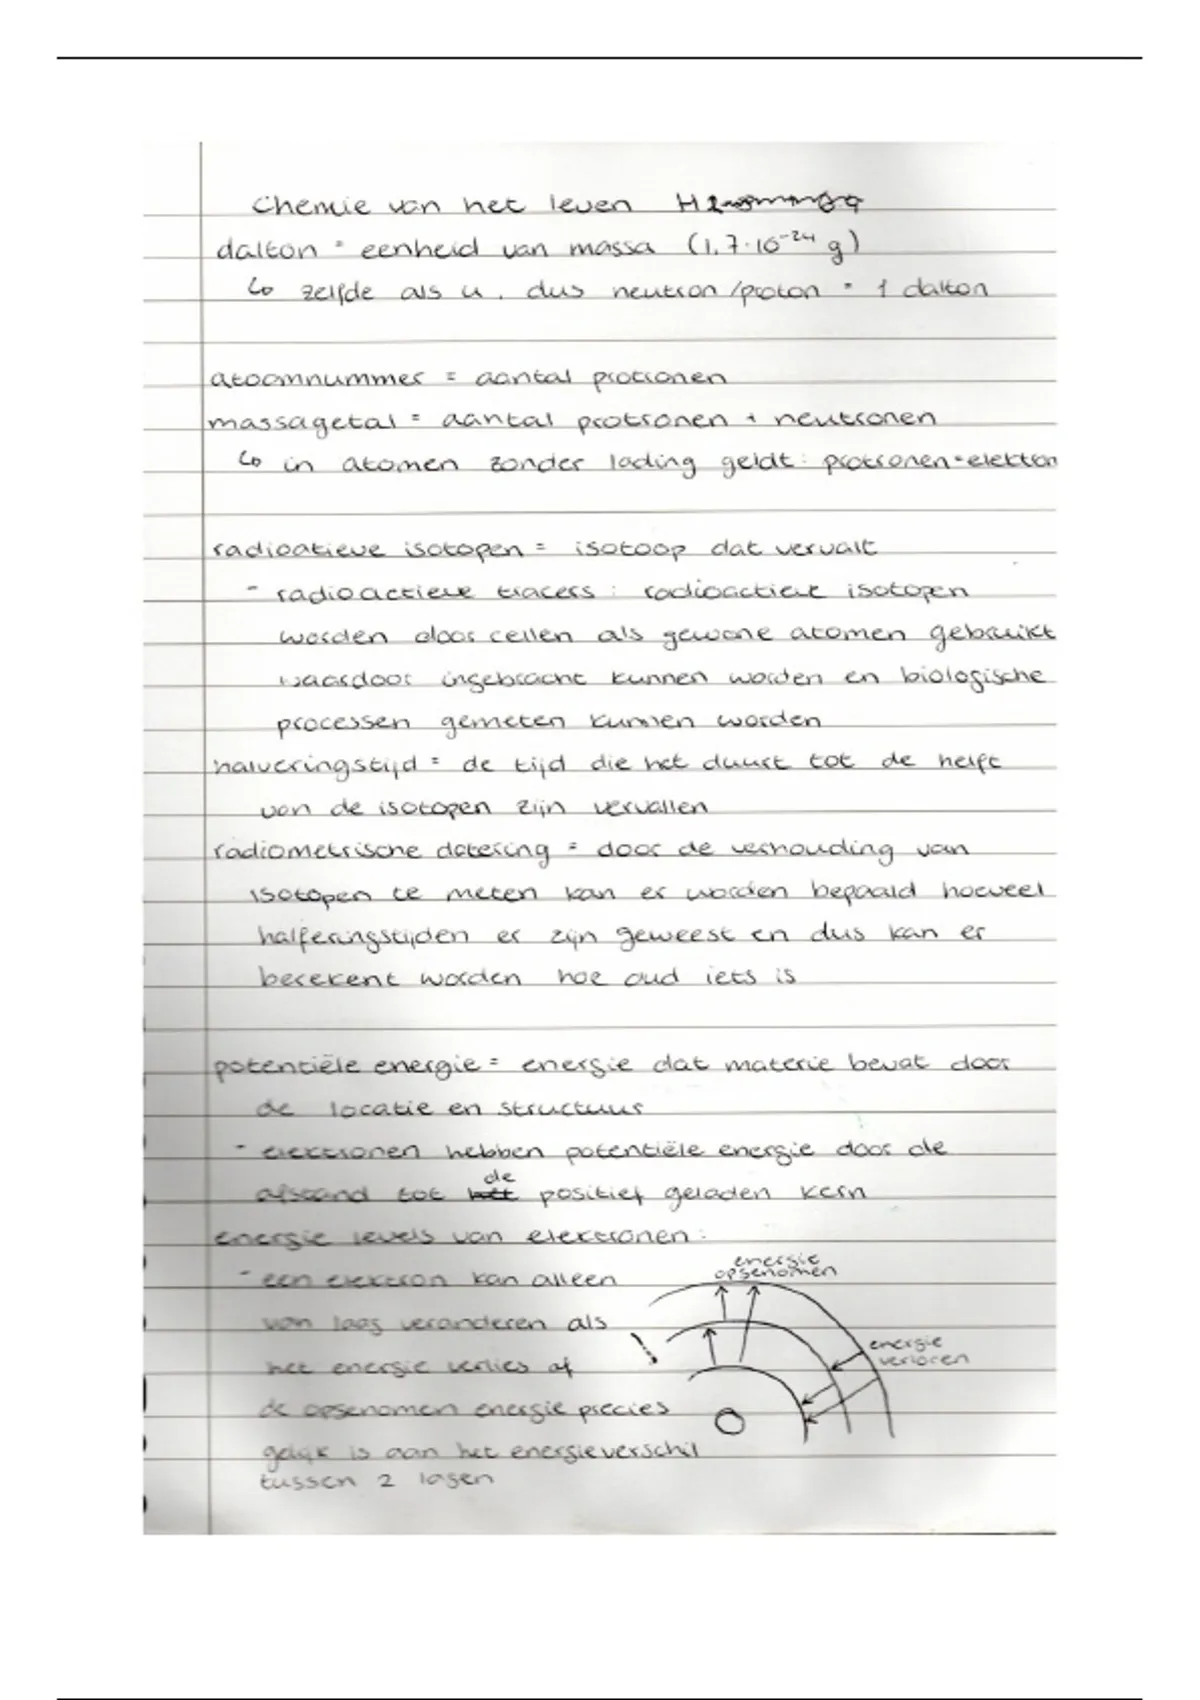 Chemie van het leven H2
dalton = eenheid van massa (1,7·10⁻²⁴ g)
↳ zelfde als u, dus neutron/proton = 1 dalton
atoomnummer = aantal protronen
massagetal = aantal protronen + neutronen
↳ in atomen zonder lading geldt: protronen=elektron
radioatieve isotopen = isotoop dat vervalt
- radioactieve tracers: radioactieve isotopen
worden door cellen als gewone atomen gebruikt
waardoor ingebracht kunnen worden en biologische
processen gemeten kunnen worden
halveringstijd = de tijd die het duurt tot de helft
van de isotopen zijn vervallen
radiometrische datering = door de verhouding van
isotopen te meten kan er worden bepaald hoeveel
halferingstijden er zijn geweest en dus kan er
berekent worden hoe oud iets is
potentiële energie = energie dat materie bevat door
de locatie en structuur
- electronen hebben potentiële energie door de
afstand tot de positief geladen kern
energie levels van electronen:
- een electron kan alleen
van laag veranderen als
het energie verlies of
de opgenomen energie precies
gelijk is aan het energieverschil
tussen 2 lagen
energie
opgenomen
energie
verloren